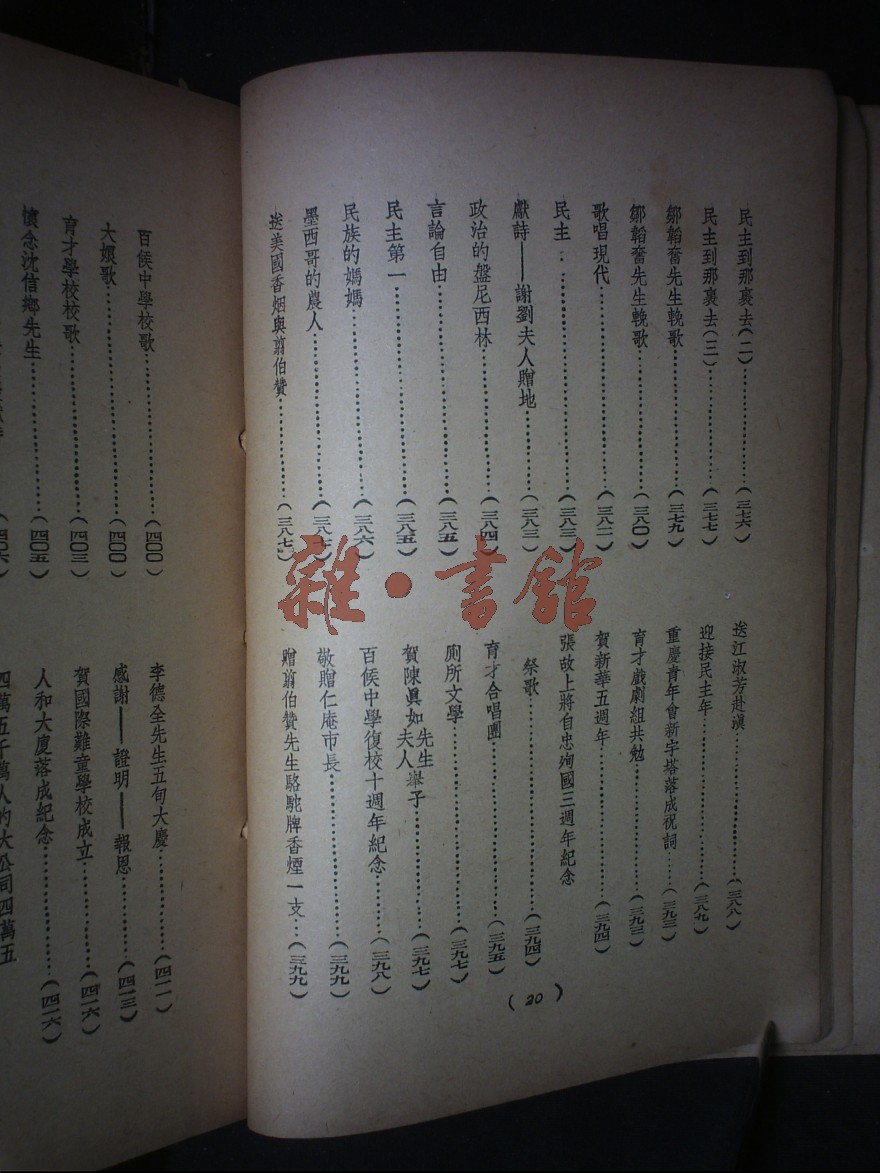 民主到那裏去(二)…………(三七六)
民主到那裏去(三)…………(三七七)
鄒韜奮先生輓歌…………(三七九)
鄒韜奮先生輓歌…………(三八〇)
歌唱現代…………(三八二)
民主…………(三八三)
獻詩——謝劉夫人贈地…………(三八三)
政治的盤尼西林…………(三八四)
言論自由…………(三八五)
民主第一…………(三八五)
民族的媽媽…………(三八六)
墨西哥的農人…………(三八七)
送美國香烟與翦伯贊…………(三八七)
送江淑芳赴滇…………(三八八)
迎接民主年…………(三八九)
重慶青年會新字塔落成祝詞……(三九三)
育才戲劇組共勉…………(三九三)
賀新華五週年…………(三九四)
張故上將自忠殉國三週年紀念
祭歌…………(三九四)
育才合唱團…………(三九五)
厠所文學…………(三九七)
賀陳眞如先生夫人舉子…………(三九七)
百侯中學復校十週年紀念…………(三九八)
敬贈仁庵市長…………(三九九)
贈翦伯贊先生駱駝牌香煙一支…(三九九)
(20)
雜·書館
百侯中學校歌…………(四〇〇)
大孃歌…………(四〇〇)
育才學校校歌…………(四〇三)
懷念沈信鄉先生…………(四〇五)
(四〇六)
李德全先生五旬大慶…………(四一一)
感謝——證明——報恩…………(四一三)
賀國際難童學校成立…………(四一六)
人和大廈落成紀念…………(四一六)
四萬五千萬人的大公司四萬五